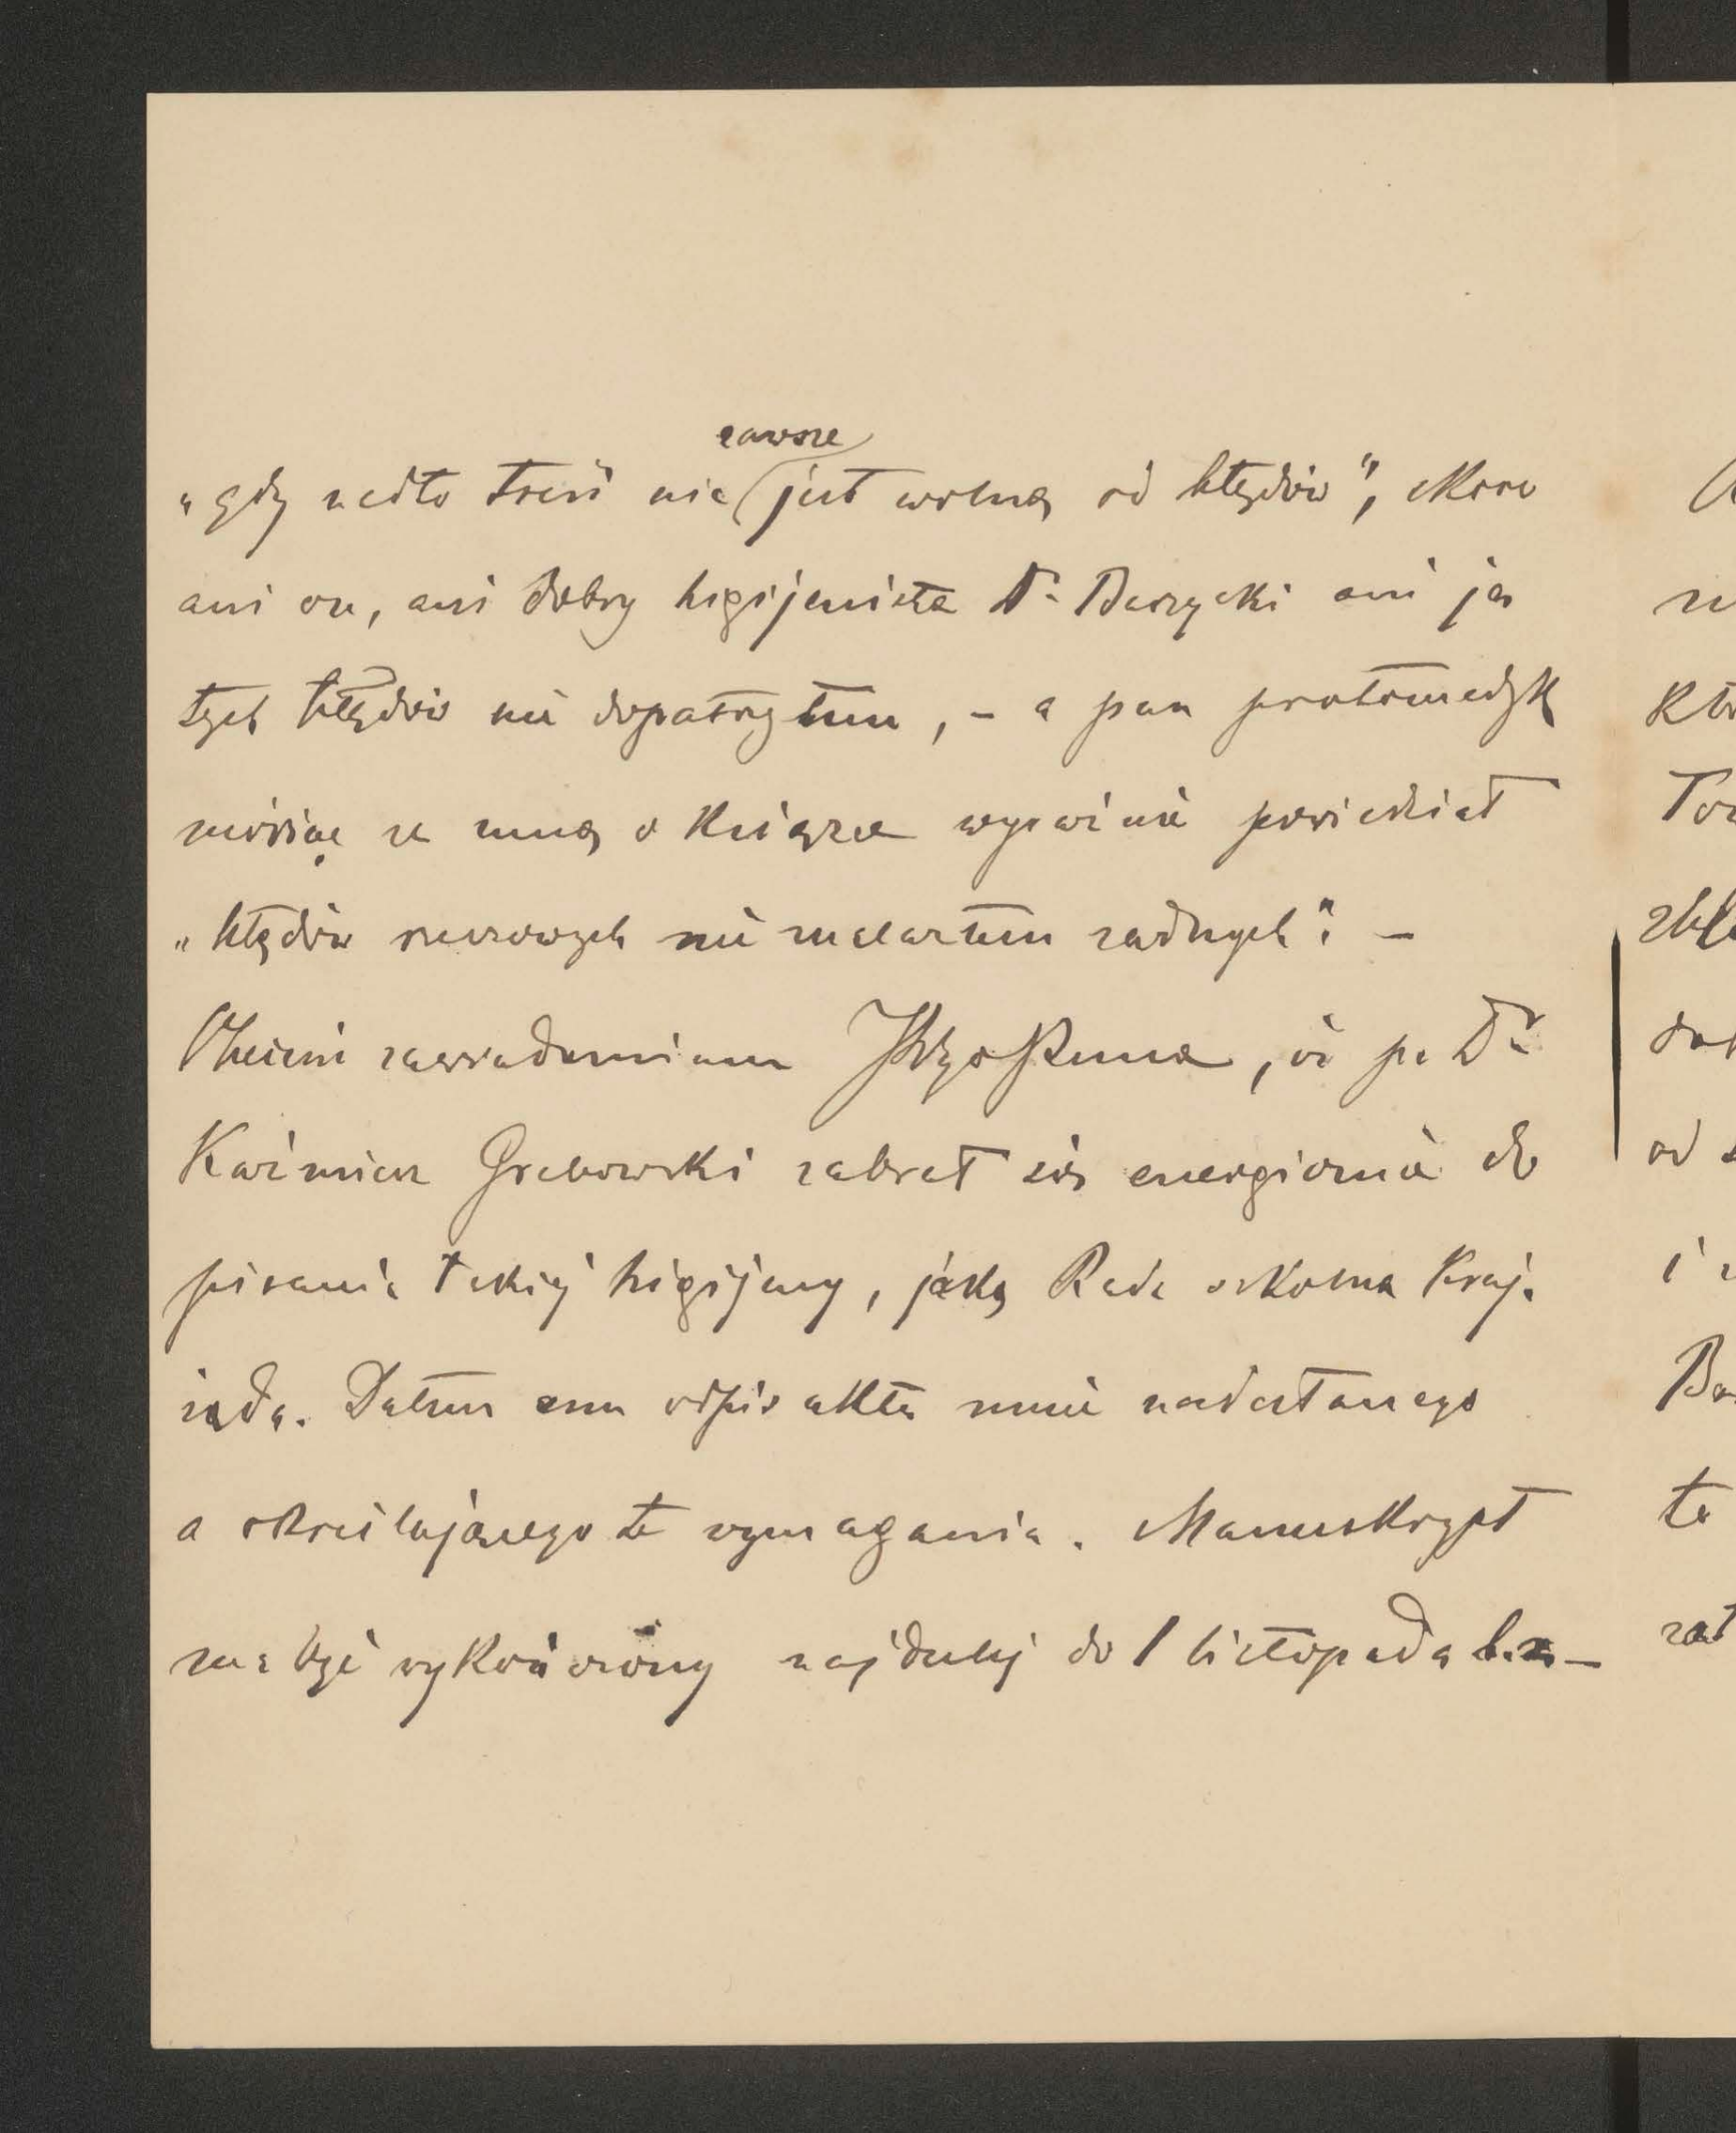 zawsze
„gdy nadto treść nie jest wolną od błędów”, skoro
ani on, ani dobry higijenista Dr Buszycki ani ja
tych błędów nie dopatrzyłem, – a pan protomedyk
mówiąc ze mną o książce wyraźnie powiedział
„błędów rzeczowych nie znalazłem żadnych”. –
Obecnie zawiadamiam JWgo Pana, iż p. Dr
Kaźmierz Grabowski zabrał się energicznie do
pisania takiej higijeny, jaką Rada szkolna kraj.
żąda. Dałem mu odpis aktu mnie nadesłanego
a określającego te wymagania. Manuskrypt
ma być wykończony najdalej do 1 listopada b.r. –